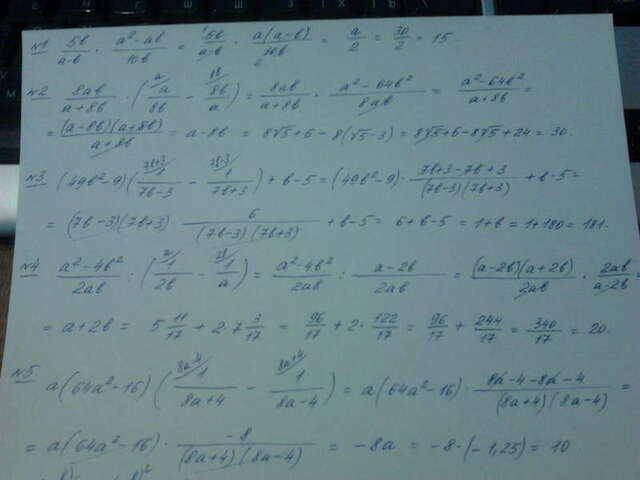 №1 5b/(a-b) · (a²-ab)/10b = 5b/(a-b) · a(a-b)/10b = a/2 = 30/2 = 15.
№2 8ab/(a+8b) · (a/8b - 8b/a) = 8ab/(a+8b) · (a²-64b²)/8ab = (a²-64b²)/(a+8b) =
= (a-8b)(a+8b)/(a+8b) = a-8b = 8√5+6-8(√5-3) = 8√5+6-8√5+24 = 30.
№3 (49b²-9)(1/(7b-3) - 1/(7b+3)) + b-5 = (49b²-9) · (7b+3-7b+3)/((7b-3)(7b+3)) + b-5 =
= (7b-3)(7b+3) · 6/((7b-3)(7b+3)) + b-5 = 6+b-5 = 1+b = 1+180 = 181.
№4 (a²-4b²)/2ab : (1/2b - 1/a) = (a²-4b²)/2ab : (a-2b)/2ab = (a-2b)(a+2b)/2ab · 2ab/(a-2b)
= a+2b = 5 11/17 + 2·7 3/17 = 96/17 + 2· 122/17 = 96/17 + 244/17 = 340/17 = 20.
№5 a(64a²-16)(1/(8a+4) - 1/(8a-4)) = a(64a²-16) · (8a-4-8a-4)/((8a+4)(8a-4)) =
= a(64a²-16) · -8/((8a+4)(8a-4)) = -8a = -8·(-1,25) = 10